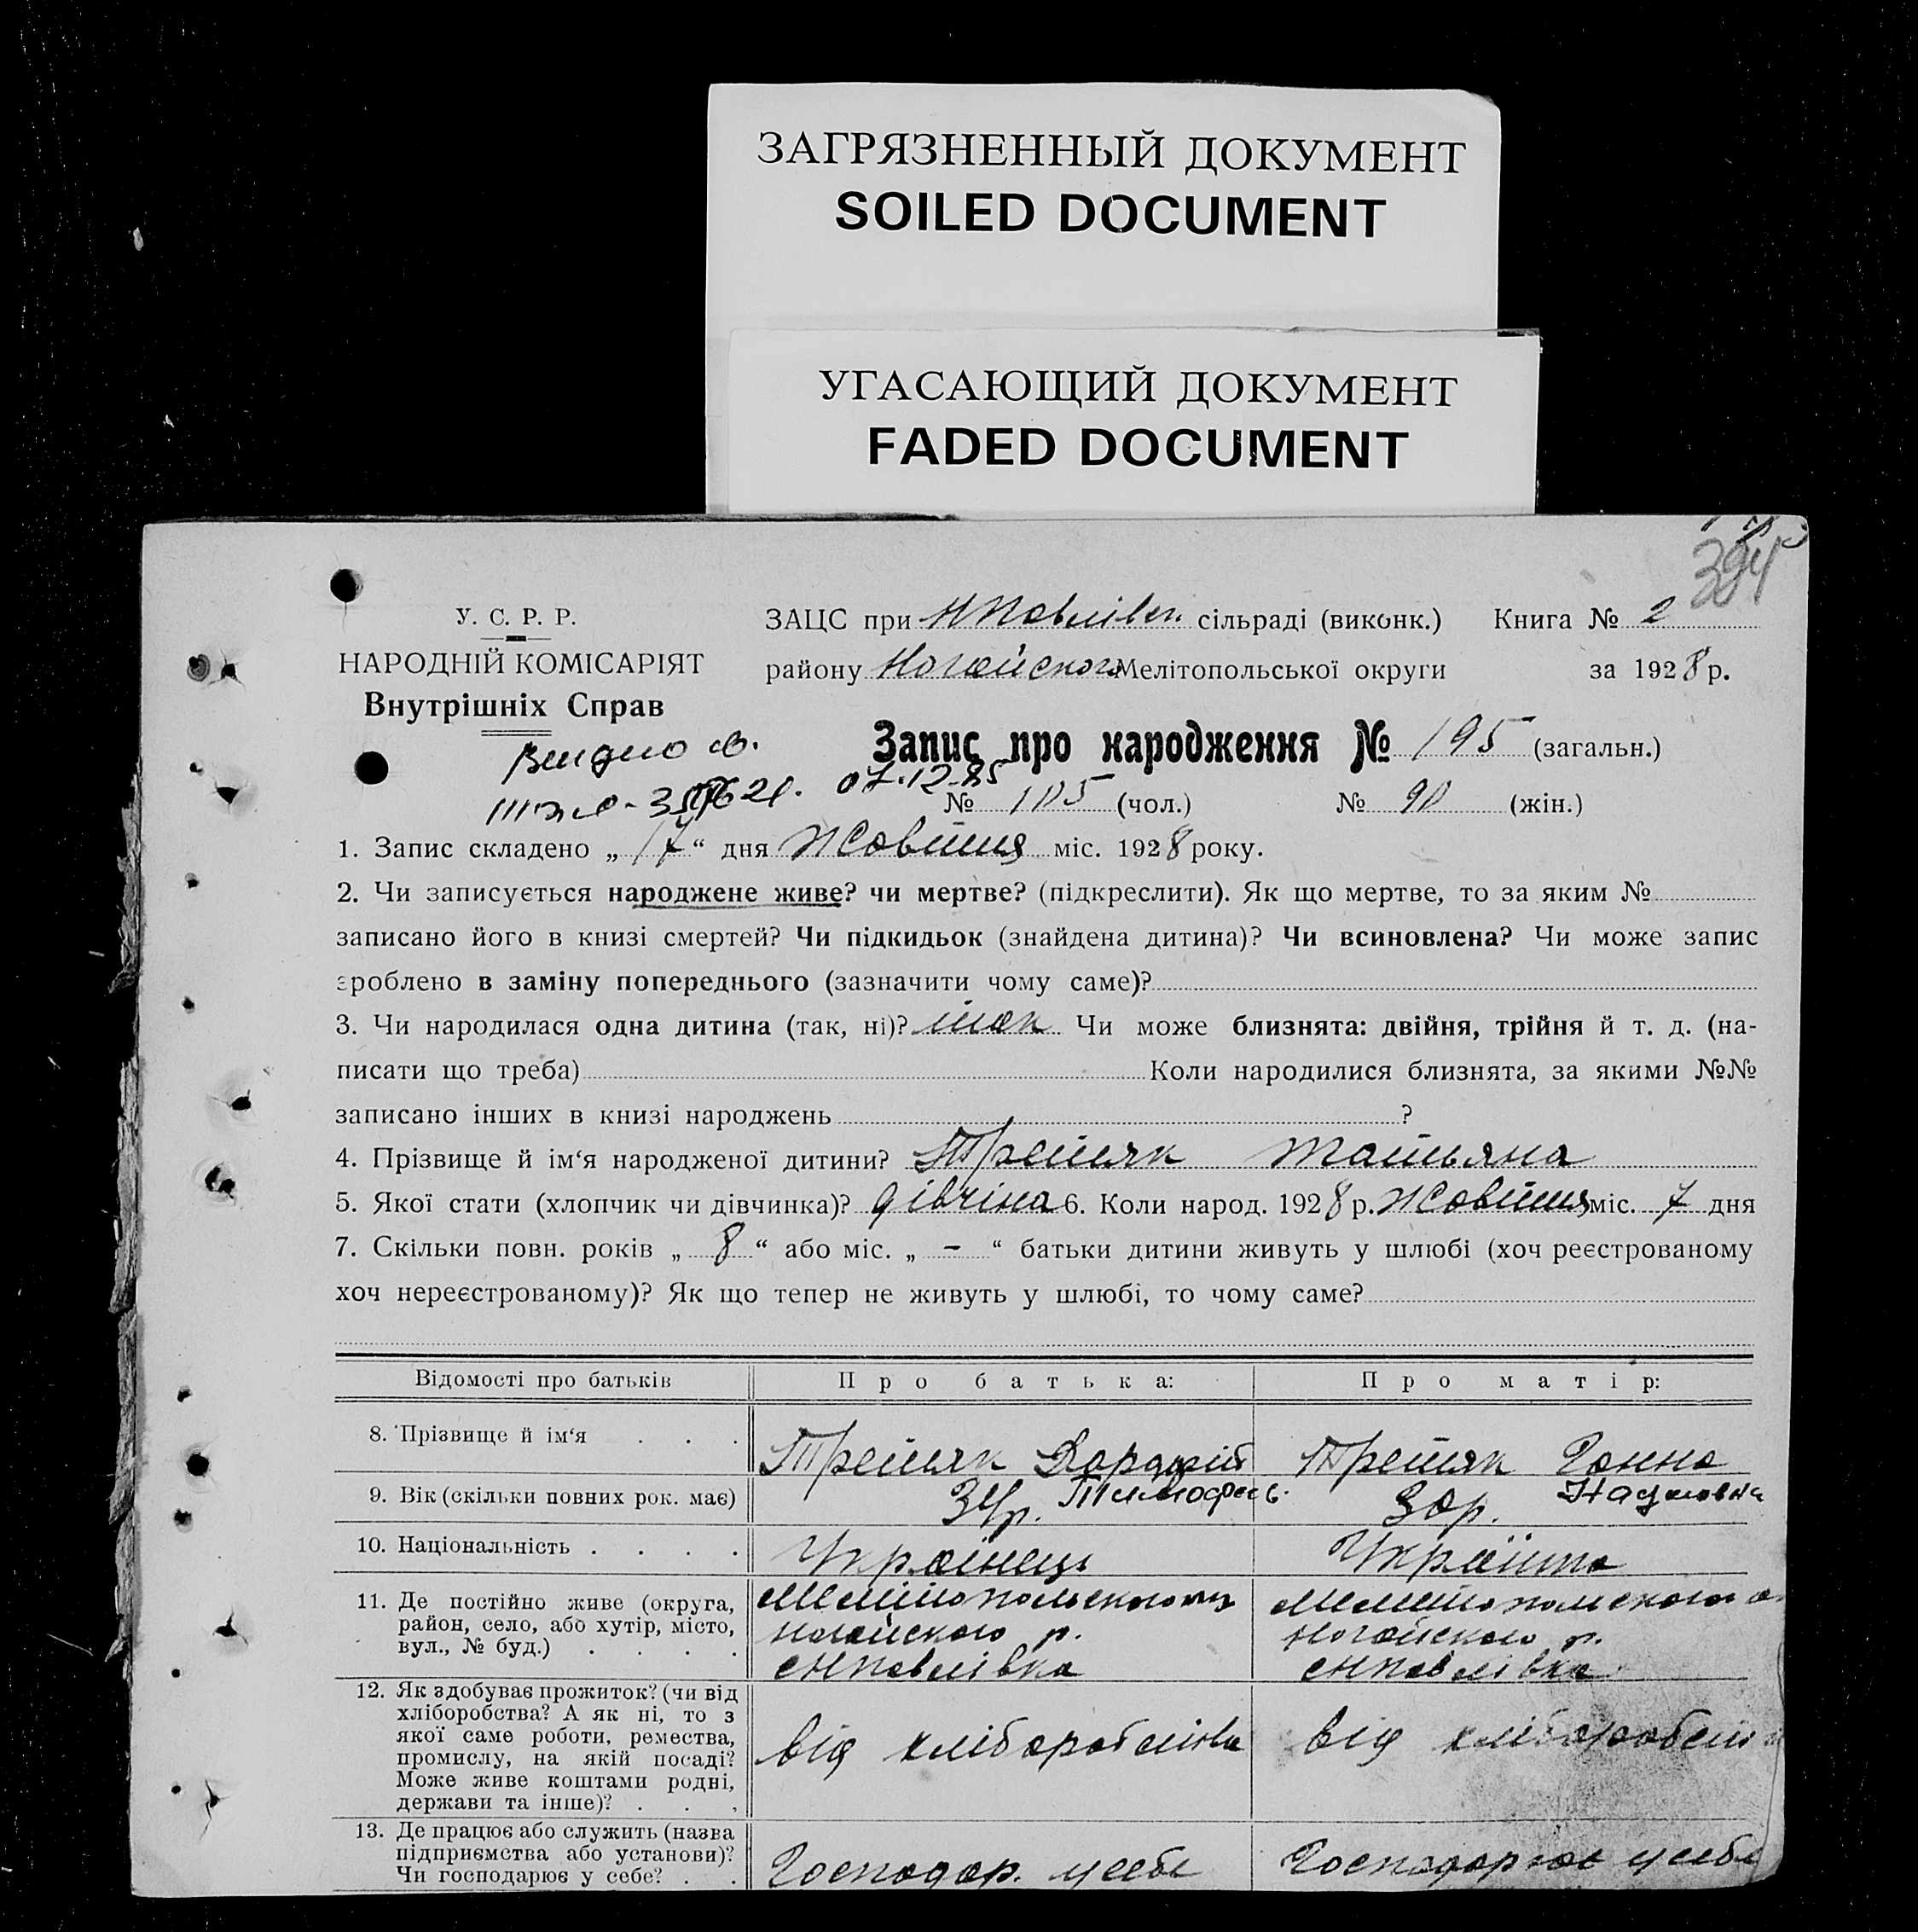 ЗАГРЯЗНЕННЫЙ ДОКУМЕНТ
SOILED DOCUMENT
УГАСАЮЩИЙ ДОКУМЕНТ
FADED DOCUMENT
394
У. С. Р. Р.
НАРОДНІЙ КОМІСАРІЯТ
Внутрішніх Справ
ЗАЦС при НПавлівк. сільраді (виконк.) Книга № 2
району Ногайского Мелітопольської округи за 1928 р.
Запис про народження № 195 (загальн.)
07.12.85
№ 105 (чол.) № 90 (жін.)
1. Запис складено „ 17 “ дня Жовтня міс. 1928 року.
2. Чи записується народжене живе? чи мертве? (підкреслити). Як що мертве, то за яким №
записано його в книзі смертей? Чи підкидьок (знайдена дитина)? Чи всиновлена? Чи може запис
зроблено в заміну попереднього (зазначити чому саме)?
3. Чи народилася одна дитина (так, ні)? так Чи може близнята: двійня, трійня й т. д. (на-
писати що треба) Коли народилися близнята, за якими №№
записано інших в книзі народжень ?
4. Прізвище й ім‘я народженої дитини? Третяк Татьяна
5. Якої стати (хлопчик чи дівчинка)? дівчіна 6. Коли народ. 1928 р. Жовтня міс. 7 дня
7. Скільки повн. років „ 8 “ або міс. „ - “ батьки дитини живуть у шлюбі (хоч реєстрованому
хоч нереєстрованому)? Як що тепер не живуть у шлюбі, то чому саме?
Відомості про батьків Про батька: Про матір:
8. Прізвище й ім‘я . . . Третяк Третяк Ганна
Тимофеев. Наумовна
9. Вік (скільки повних рок. має) 30р.
10. Національність . . . . Українець Українка
11. Де постійно живе (округа,
район, село, або хутір, місто,
вул., № буд.) . . . .
Мелітопольского
Ногайского р.
с НПавлівка
Мелитопольского о
Ногайского р.
с НПавлівка
12. Як здобуває прожиток? (чи від
хліборобства? А як ні, то з
якої саме роботи, ремества,
промислу, на якій посаді?
Може живе коштами родні,
держави та інше)? . . .
від хліборобства
від хліборобств
13. Де працює або служить (назва
підприємства або установи)?
Чи господарює у себе? . .
Господар. у себе
Господарює у себе